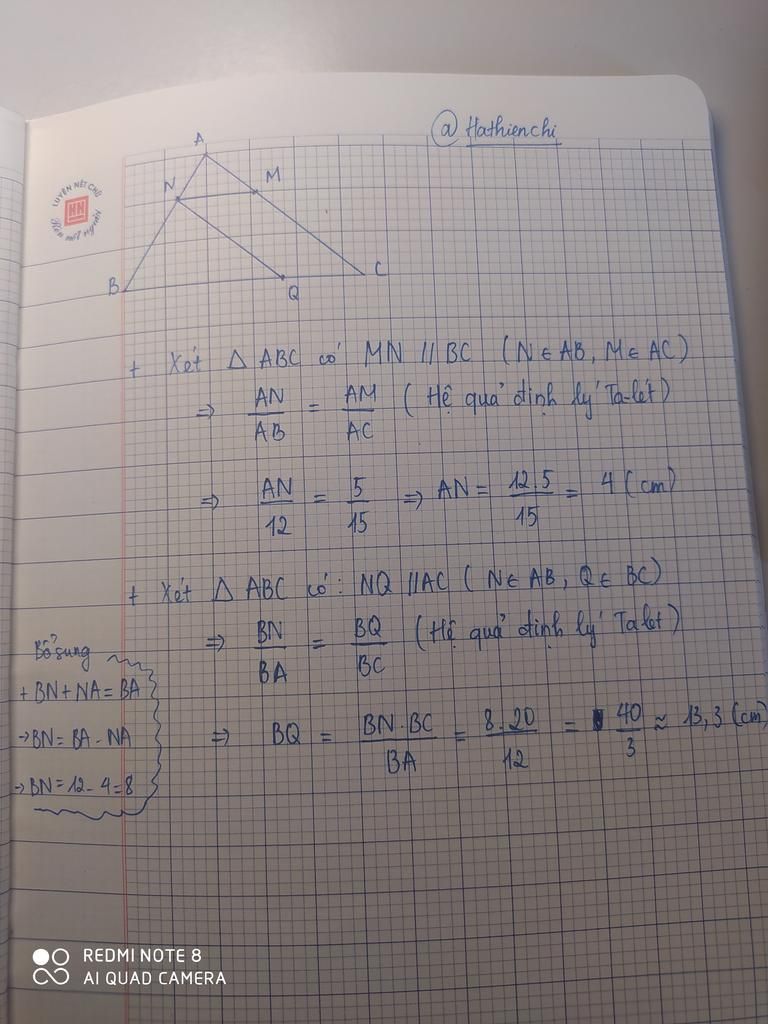 @ Hathienchi
LUYỆN NÉT CHỮ
HN
A
N
M
B
Q
C
+ Xét Δ ABC có MN // BC (N ∈ AB, M ∈ AC)
⇒ AN/AB = AM/AC (Hệ quả định lý Ta-lét)
⇒ AN/12 = 5/15 ⇒ AN = 12.5/15 = 4 (cm)
+ Xét Δ ABC có: NQ // AC (N ∈ AB, Q ∈ BC)
⇒ BN/BA = BQ/BC (Hệ quả định lý Talet)
⇒ BQ = BN.BC/BA = 8.20/12 = 40/3 ≈ 13,3 (cm)
Bổ sung
+ BN + NA = BA
→ BN = BA - NA
→ BN = 12 - 4 = 8
REDMI NOTE 8
AI QUAD CAMERA